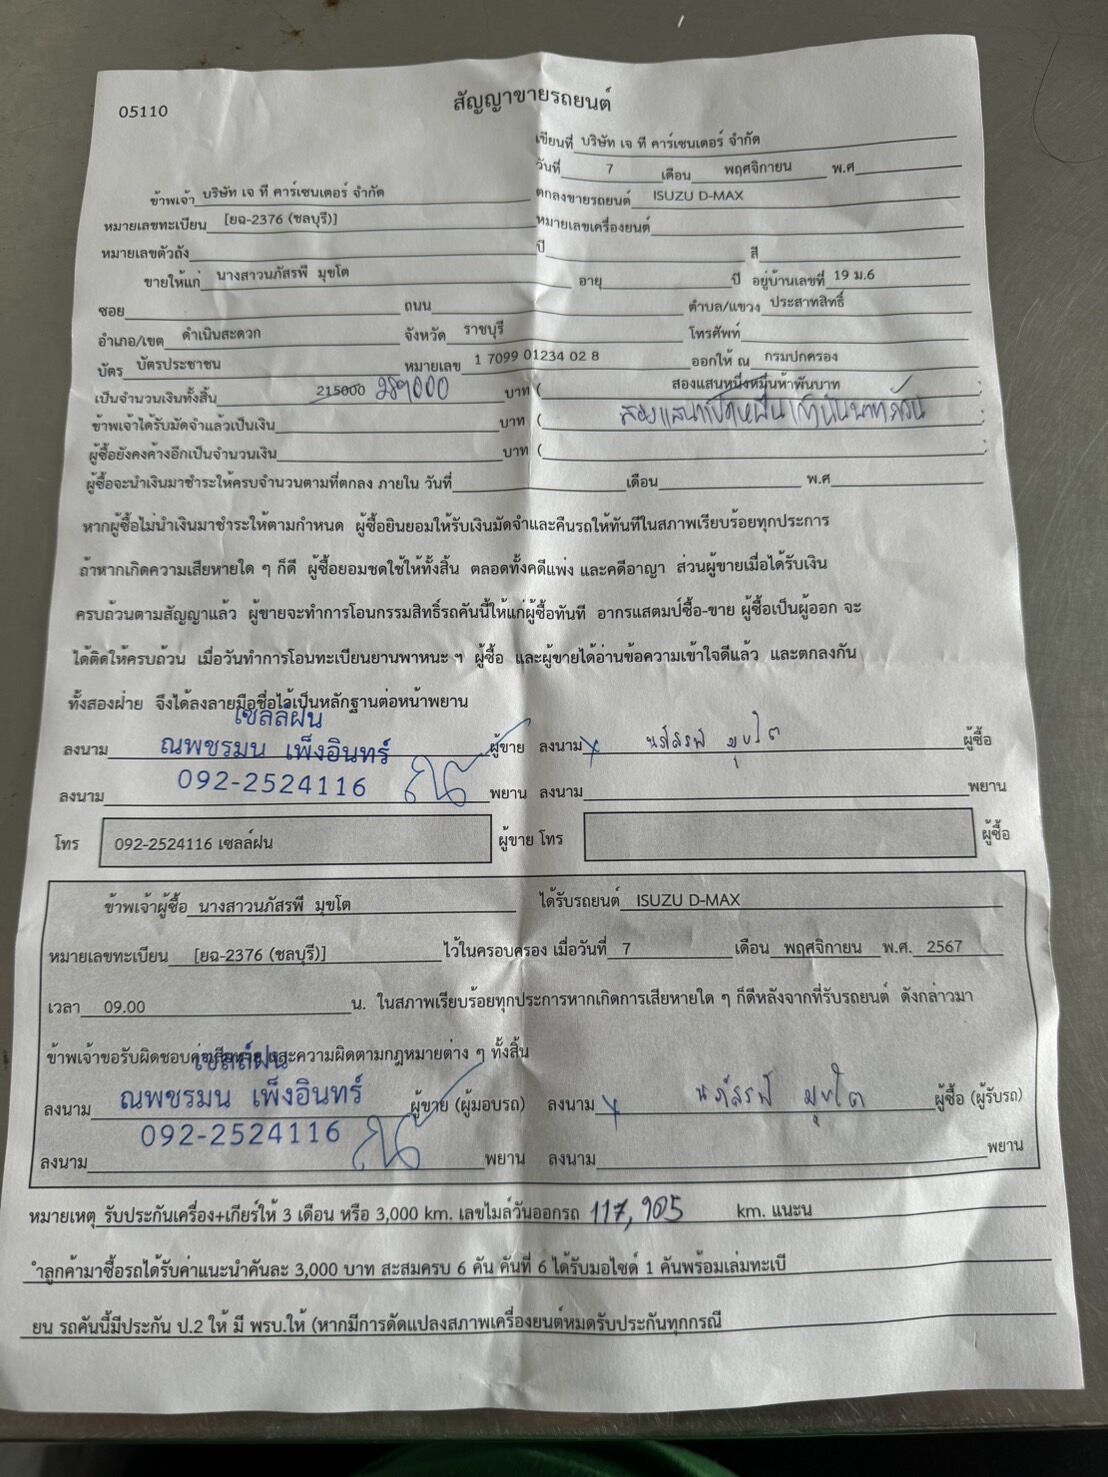 05110
สัญญาขายรถยนต์
เขียนที่ บริษัท เจ ที คาร์เซนเตอร์ จำกัด
วันที่ 7 เดือน พฤศจิกายน พ.ศ
ข้าพเจ้า บริษัท เจ ที คาร์เซนเตอร์ จำกัด ตกลงขายรถยนต์ ISUZU D-MAX
หมายเลขทะเบียน [ยฉ-2376 (ชลบุรี)] หมายเลขเครื่องยนต์
หมายเลขตัวถัง ปี สี
ขายให้แก่ นางสาวนภัสรพี มุขโต อายุ ปี อยู่บ้านเลขที่ 19 ม.6
ซอย ถนน ตำบล/แขวง ประสาทสิทธิ์
อำเภอ/เขต ดำเนินสะดวก จังหวัด ราชบุรี โทรศัพท์
บัตร บัตรประชาชน หมายเลข 1 7099 01234 02 8 ออกให้ ณ กรมปกครอง
เป็นจำนวนเงินทั้งสิ้น 215000 289000 บาท ( สองแสนหนึ่งหมื่นห้าพันบาท
ข้าพเจ้าได้รับมัดจำแล้วเป็นเงิน บาท ( สองแสนแปดหมื่นเก้าพันบาทถ้วน
ผู้ซื้อยังคงค้างอีกเป็นจำนวนเงิน บาท (
ผู้ซื้อจะนำเงินมาชำระให้ครบจำนวนตามที่ตกลง ภายใน วันที่ เดือน พ.ศ
หากผู้ซื้อไม่นำเงินมาชำระให้ตามกำหนด ผู้ซื้อยินยอมให้รับเงินมัดจำและคืนรถให้ทันทีในสภาพเรียบร้อยทุกประการ
ถ้าหากเกิดความเสียหายใด ๆ ก็ดี ผู้ซื้อยอมชดใช้ให้ทั้งสิ้น ตลอดทั้งคดีแพ่ง และคดีอาญา ส่วนผู้ขายเมื่อได้รับเงิน
ครบถ้วนตามสัญญาแล้ว ผู้ขายจะทำการโอนกรรมสิทธิ์รถคันนี้ให้แก่ผู้ซื้อทันที อากรแสตมป์ซื้อ-ขาย ผู้ซื้อเป็นผู้ออก จะ
ได้ติดให้ครบถ้วน เมื่อวันทำการโอนทะเบียนยานพาหนะ ฯ ผู้ซื้อ และผู้ขายได้อ่านข้อความเข้าใจดีแล้ว และตกลงกัน
ทั้งสองฝ่าย จึงได้ลงลายมือชื่อไว้เป็นหลักฐานต่อหน้าพยาน
เซลล์ฝน
ลงนาม ณพชรมน เพ็งอินทร์ ผู้ขาย ลงนาม นภัสรพี มุขโต ผู้ซื้อ
ลงนาม 092-2524116 พยาน ลงนาม พยาน
โทร 092-2524116 เซลล์ฝน ผู้ขาย โทร ผู้ซื้อ
ข้าพเจ้าผู้ซื้อ นางสาวนภัสรพี มุขโต ได้รับรถยนต์ ISUZU D-MAX
หมายเลขทะเบียน [ยฉ-2376 (ชลบุรี)] ไว้ในครอบครอง เมื่อวันที่ 7 เดือน พฤศจิกายน พ.ศ. 2567
เวลา 09.00 น. ในสภาพเรียบร้อยทุกประการหากเกิดการเสียหายใด ๆ ก็ดีหลังจากที่รับรถยนต์ ดังกล่าวมา
ข้าพเจ้าขอรับผิดชอบค่าเสียหาย และความผิดตามกฎหมายต่าง ๆ ทั้งสิ้น
เซลล์ฝน
ลงนาม ณพชรมน เพ็งอินทร์ ผู้ขาย (ผู้มอบรถ) ลงนาม นภัสรพี มุขโต ผู้ซื้อ (ผู้รับรถ)
092-2524116
ลงนาม พยาน ลงนาม พยาน
หมายเหตุ รับประกันเครื่อง+เกียร์ให้ 3 เดือน หรือ 3,000 km. เลขไมล์วันออกรถ 117,905 km. แนะน
ำลูกค้ามาซื้อรถได้รับค่าแนะนำคันละ 3,000 บาท สะสมครบ 6 คัน คันที่ 6 ได้รับมอไซด์ 1 คันพร้อมเล่มทะเบี
ยน รถคันนี้มีประกัน ป.2 ให้ มี พรบ.ให้ (หากมีการดัดแปลงสภาพเครื่องยนต์หมดรับประกันทุกกรณี